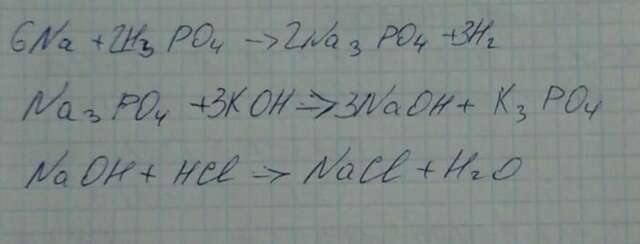 6Na + 2H₃PO₄ → 2Na₃PO₄ + 3H₂
Na₃PO₄ + 3KOH → 3NaOH + K₃PO₄
NaOH + HCl → NaCl + H₂O